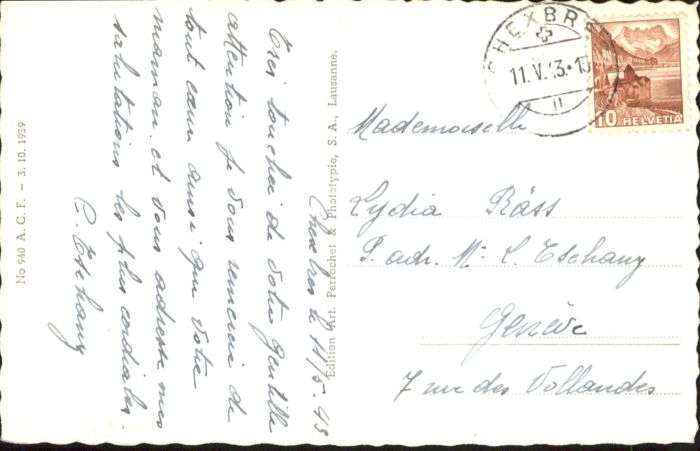 Chexbres le 11/5-43
Très touchée de votre gentille
attention je vous remercie de
tout cœur ainsi que votre
maman et vous adresse mes
salutations les plus cordiales.
C. Tschany
No 940 A. C. F. — 3. 10. 1939
Edition Art. Perrochet & Phototypie, S. A., Lausanne.
CHEXBRES
11.V.43
10 HELVETIA
Mademoiselle
Lydia Räss
P. adr. Mr L. Tschany
Genève
7 rue des Vollandes